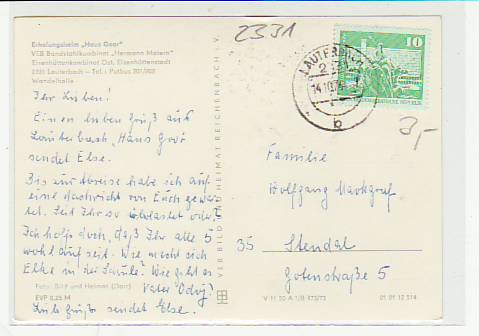 2331
Erholungsheim „Haus Goor"
VEB Bandstahlkombinat „Hermann Matern"
Eisenhüttenkombinat Ost, Eisenhüttenstadt
2331 Lauterbach – Tel.: Putbus 201/202
Wandelhalle
Ihr Lieben!
Einen lieben Gruß aus
Lauterbach, Haus Goor
sendet Else.
Bis zur Abreise habe ich auf
eine Nachricht von Euch gewar-
tet. Seid Ihr so überlastet oder?
Ich hoffe doch, daß Ihr alle 5
wohlauf seid. Wie macht sich
Elke in der Schule? Wie geht es
Vater
Lieb Gruß sendet Else.
Foto: Bild und Heimat (Darr)
EVP 0,25 M
VEB BILD UND HEIMAT REICHENBACH I. V.
LAUTERBACH
2331
14.10.
b
10
3,-
Familie
Wolfgang Markgraf
35 Stendal
Gotenstraße 5
01 01 12 514